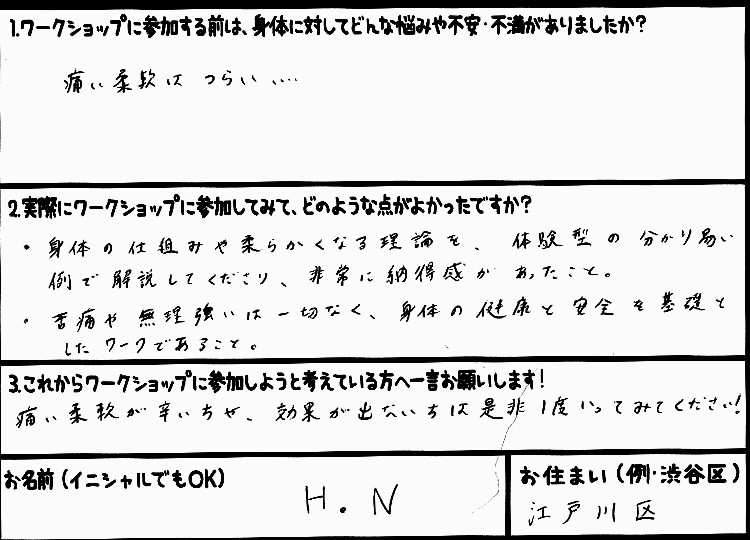 1.ワークショップに参加する前は、身体に対してどんな悩みや不安・不満がありましたか?
痛い柔軟は つらい….
2.実際にワークショップに参加してみて、どのような点がよかったですか?
・身体の仕組みや柔らかくなる理論を、体験型の分かり易い
例で解説してくださり、非常に納得感があったこと。
・苦痛や無理強いは一切なく、身体の健康と安全を基礎と
したワークであること。
3.これからワークショップに参加しようと考えている方へ一言お願いします!
痛い柔軟が辛い方や、効果が出ない方は是非1度いってみてください!
お名前(イニシャルでもOK)
H.N
お住まい(例・渋谷区)
江戸川区